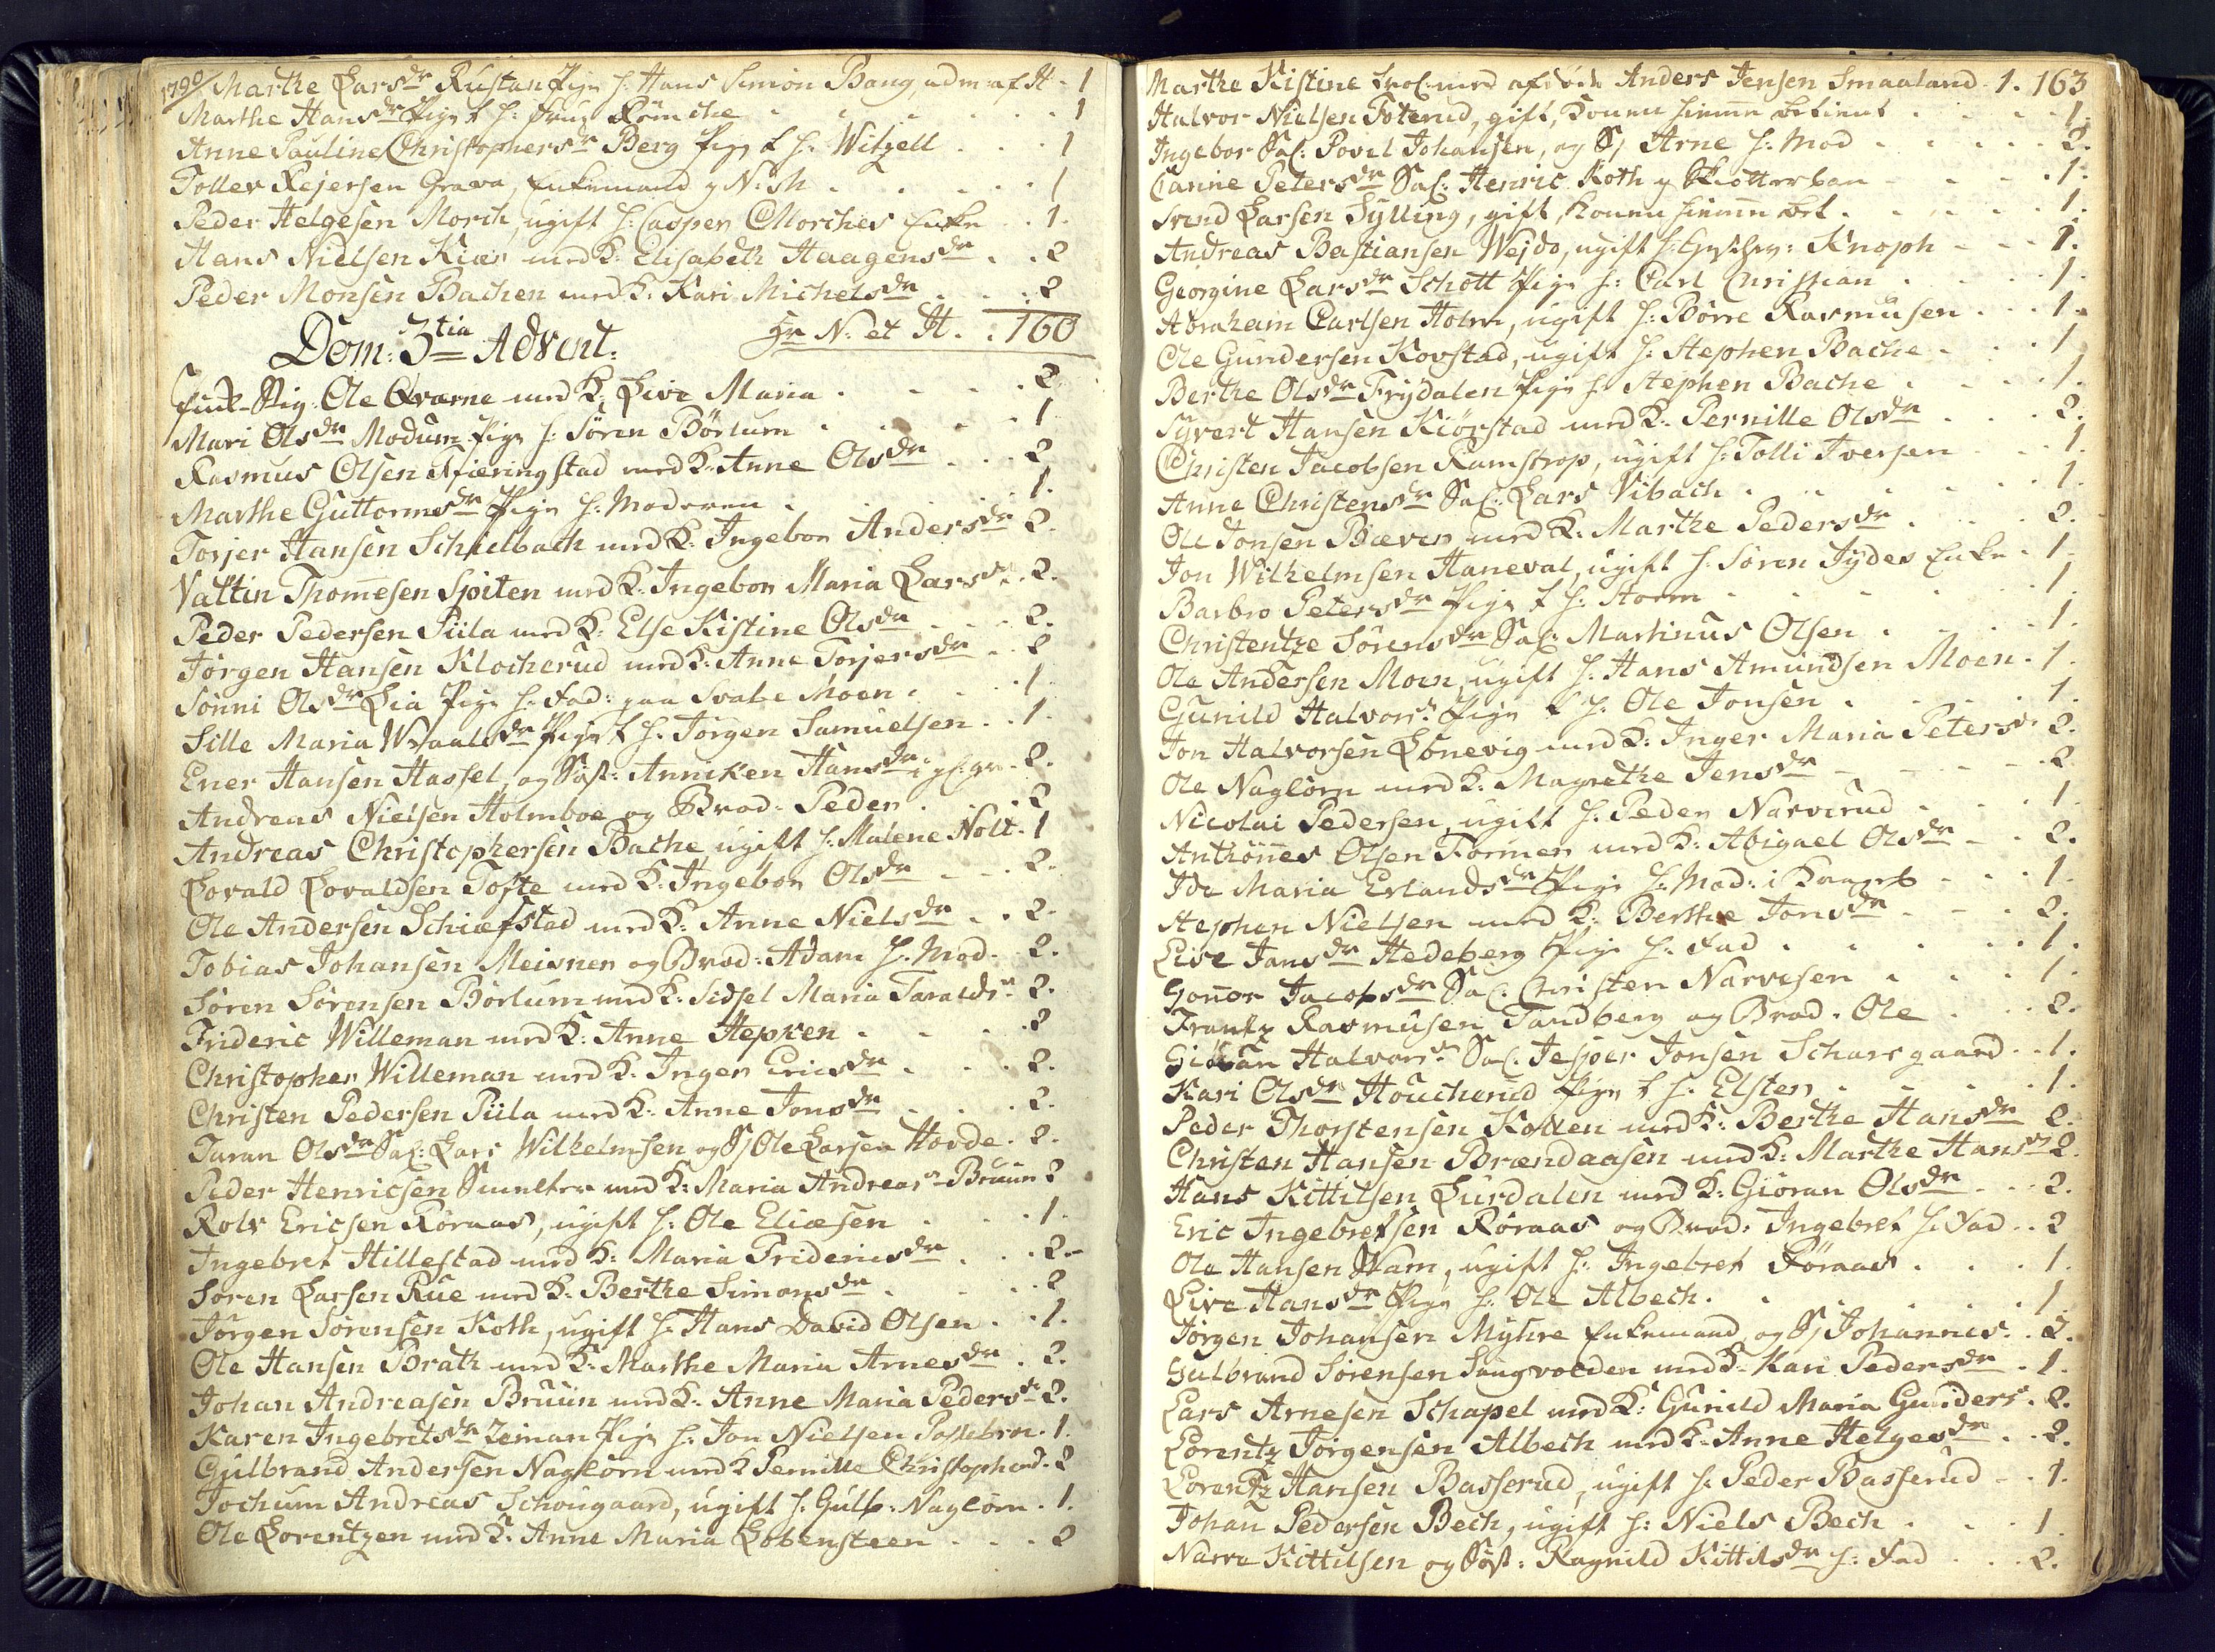 1790/ Marthe Larsdr Rustan Pige h: Hans Simon Bang, adm af H - 1
Marthe Hansdr Pige t h: frue Römche . . . . 1
Anne Pauline Christophersdr Berg Pige t h: Witzell . . . 1
Tollev Rejersen Grava, Enkemand g N: M . . . . 1
Peder Helgesen Morch, ugift h: Casper Morches Enke . . 1.
Hans Nielsen Kiær med K: Elisabeth Haagensdr . . 2
Peder Monsen Bachen med K: Kari Michelsdr . . . 2
Dom: 3tia Advent: N: et H. . 160
Stig: Ole Qværne med K: Live Maria . . . . 2.
Mari Olsdr Modum Pige h: Sören Börlum . . . . 1
Rasmus Olsen Tfieringstad med K: Anne Olsdr . . . 2
Marthe Guttormsdr Pige h: Moderen . . . . 1.
Torjer Hansen Schielbach med K: Ingebor Andersdr 2.
Valtin Thomesen Spiten med K: Ingebor Maria Larsdr . 2.
Peder Pedersen Piila med K: Else Kistine Olsdr . . . 2.
Jörgen Hansen Klocherud med K: Anne Torjersdr . . 2
Sönni Olsdr Lia Pige h: Fad: paa Svale Moen . . . 1
Sille Maria Wraalsdr Pige t h: Jörgen Samuelsen . . 1.
Ener Hansen Hassel, og Söst: Anniken Hansdr - 2.
Andreas Nielsen Holmboe og Brod: Peder . . . 2
Andreas Christophersen Bache ugift h: Malene Nolt . 1
Lovald Lovaldsen Tofte med K: Ingebor Olsdr . . . 2.
Ole Andersen Schiæfstad med K: Anne Nielsdr . . 2.
Tobias Johansen Meisner og Brod: Adam h: Mod . 2.
Sören Sörensen Börlum med K: Sidsel Maria Taraldsdr 2.
Frideric Willeman med K: Anne Hepken . . . . 2
Christopher Willeman med K: Inger Ericsdr . . . 2.
Christen Pedersen Piila med K: Anne Jonsdr . . . 2.
Turan Olsdr Sal: Lars Wilhelmsen og S/ Ole Larsen Hovde . 2.
Peder Henricsen Smelter med K: Maria Andreasdr Bruun 2
Rolv Ericsen Röraas, ugift h: Ole Eliæsen . . . 1.
Ingebret Hillestad med K: Maria Fridericsdr . . . 2.
Sören Larsen Rue med K: Berthe Simonsdr . . . . 2
Jörgen Sörensen Koth, ugift h: Hans David Olsen . . 1.
Ole Hansen Brath med K: Marthe Maria Arnesdr . 2.
Johan Andreasen Bruun med K: Anne Maria Pedersdr 2.
Karen Ingebretsdr Zeiman Pige h: Jon Nielsen Posselson . 1.
Gulbrand Andersen Naglörn med K Pernille Christophersd . 2
Jochum Andreas Schougaard, ugift h: Gulb: Naglörn . 1.
Ole Lorentzen med K: Anne Maria Lobensteen . . . 2
Marthe Kistine med afdöde Anders Jensen Smaaland . 1. 163
Halvor Nielsen Foterud, gift, Konen hiemme betient . . . 1.
Ingebor Sal: Povel Johansen, og S/ Arne h: Mod . . . . . 2.
Carine Petersdr Sal: Henric Koth g Skotterban . . . . 1.
Svend Larsen Sylling, gift, Konen hiemme bet . . . . . 1.
Andreas Bastiansen Wejdo, ugift h: Geschw: Knoph . . . 1.
Georgine Larsdr Schott Pige h: Carl Christian . . . . 1.
Abraham Carlsen Holm, ugift h: Börre Rasmusen . . . 1.
Ole Gundersen Kovstad, ugift h: Stephen Bache . . . 1
Berthe Olsdr Frydalen Pige h: Stephen Bache . . . . 1.
Syvert Hansen Kiörstad med K: Pernille Olsdr . . . 2.
Christen Jacobsen Ramstrop, ugift h: Tolli Iversen . . 1.
Anne Christensdr Sal: Lars Vibach . . . . . . 1.
Ole Jonsen Bæver med K: Marthe Pedersdr . . . . 2.
Jon Wilhelmsen Haneval, ugift h: Sören Jydes Enke . 1.
Barbro Petersdr Pige t h: Storm . . . . . . 1
Christentze Sörensdr Sal: Martinus Olsen . . . . 1.
Ole Andersen Moen, ugift h: Hans Amundsen Moen . 1.
Gunild Halvorsdr Pige t h: Ole Jonsen . . . . 1.
Jon Halvorsen Lönevig med K: Inger Maria Petersdr 2.
Ole Naglörn med K: Magrethe Jensdr . . . . . 2
Nicolai Pedersen, ugift h: Peder Narverud . . . . 1
Anthönnes Olsen Former med K: Abigael Olsdr . . 2.
Ide Maria Erlandsdr Pige h: Mod: i . . . 1.
Stephen Nielsen med K: Berthe Jonsdr . . . 2.
Live Jansdr Hedeberg Pige h: Fad . . . . . 1.
Gonor Jacobsdr Sal: Christen Narvesen . . . . 1.
Frantz Rasmusen Tandberg og Brod: Ole . . . 2.
Giöran Halvorsdr Sal: Jesper Jonsen Scharsgaard . . 1.
Kari Olsdr Houcherud Pige t h: Elster . . . . . 1.
Peder Thorstensen Kollen med K: Berthe Hansdr 2.
Christen Hansen Brændaasen med K: Marthe Hansdr 2.
Hans Kittilsen Lurdalen med K: Giöran Olsdr . . . 2.
Eric Ingebretsen Röraas og Brod: Ingebret h: Fad . . 2
Ole Hansen Ham, ugift h: Ingebret Röraas . . . 1.
Live Hansdr Pige h: Ole Albech . . . . . . 1.
Jörgen Johansen Myhre Enkemand og S/ Johannes . . 2.
Gulbrand Sörensen Saugvolden med K: Kari Pedersdr . 1.
Lars Arnesen Schapel med K: Gunild Maria Gunders . 2.
Lorentz Jörgensen Albech med K: Anne Helgesdr . . 2.
Lorentz Hansen Basserud, ugift h: Peder Basserud . . 1.
Johan Pedersen Bech, ugift h: Niels Bech . . . 1.
Narve Kittilsen og Söst: Ragnild Kittilsdr h: Fad . . . 2.